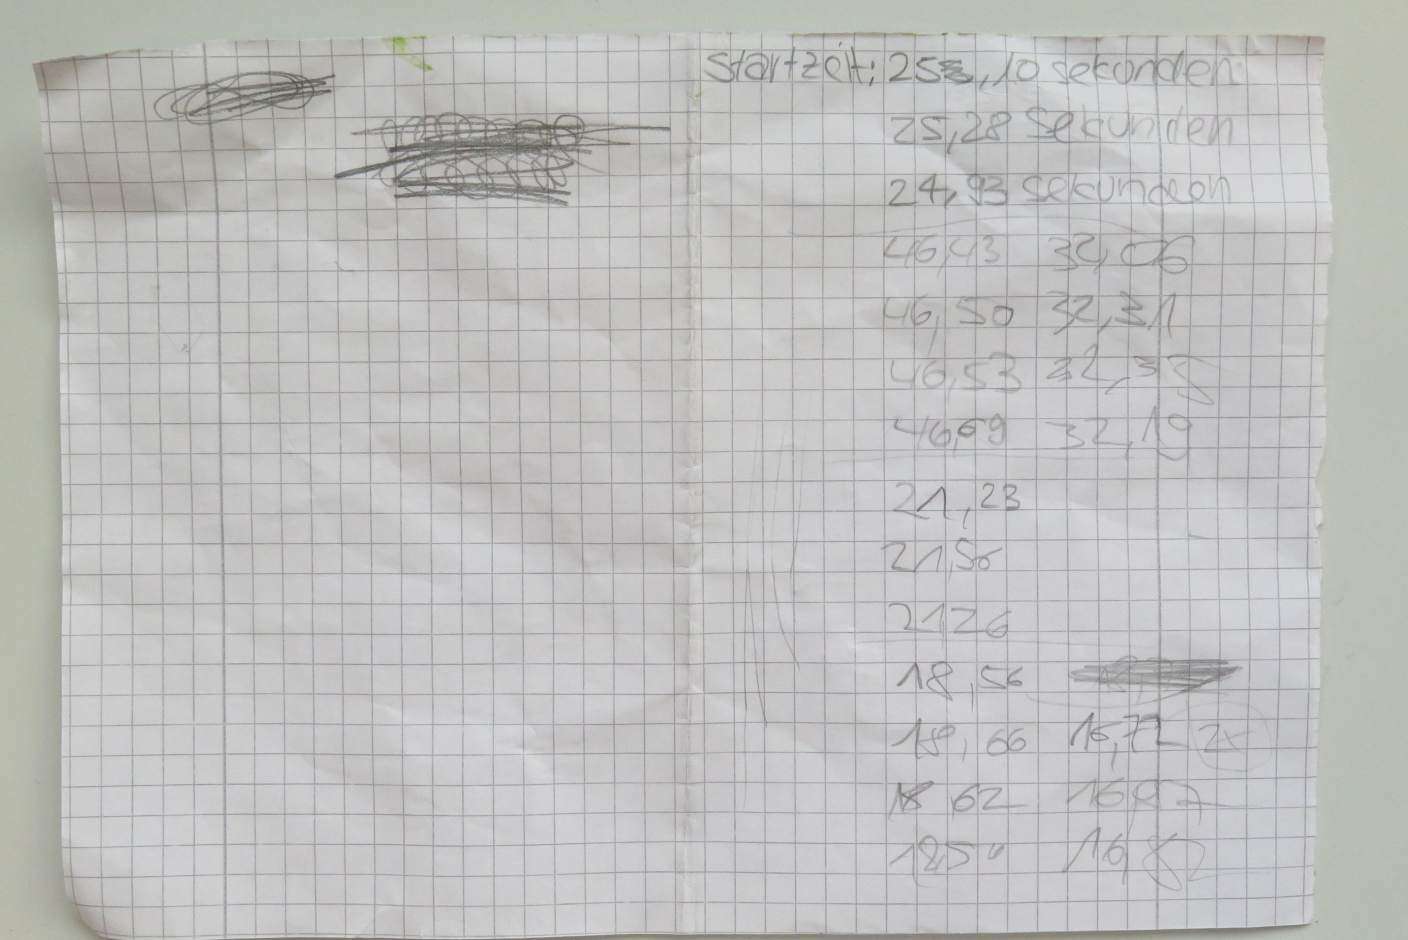 Startzeit: 25,10 sekunden
25,28 Sekunden
24,93 sekunden
46,43 32,06
46,50 32,31
46,53
46,69 32,19
21,23
21,56
21,26
18,56
18,66 16,72
18,62
16,82